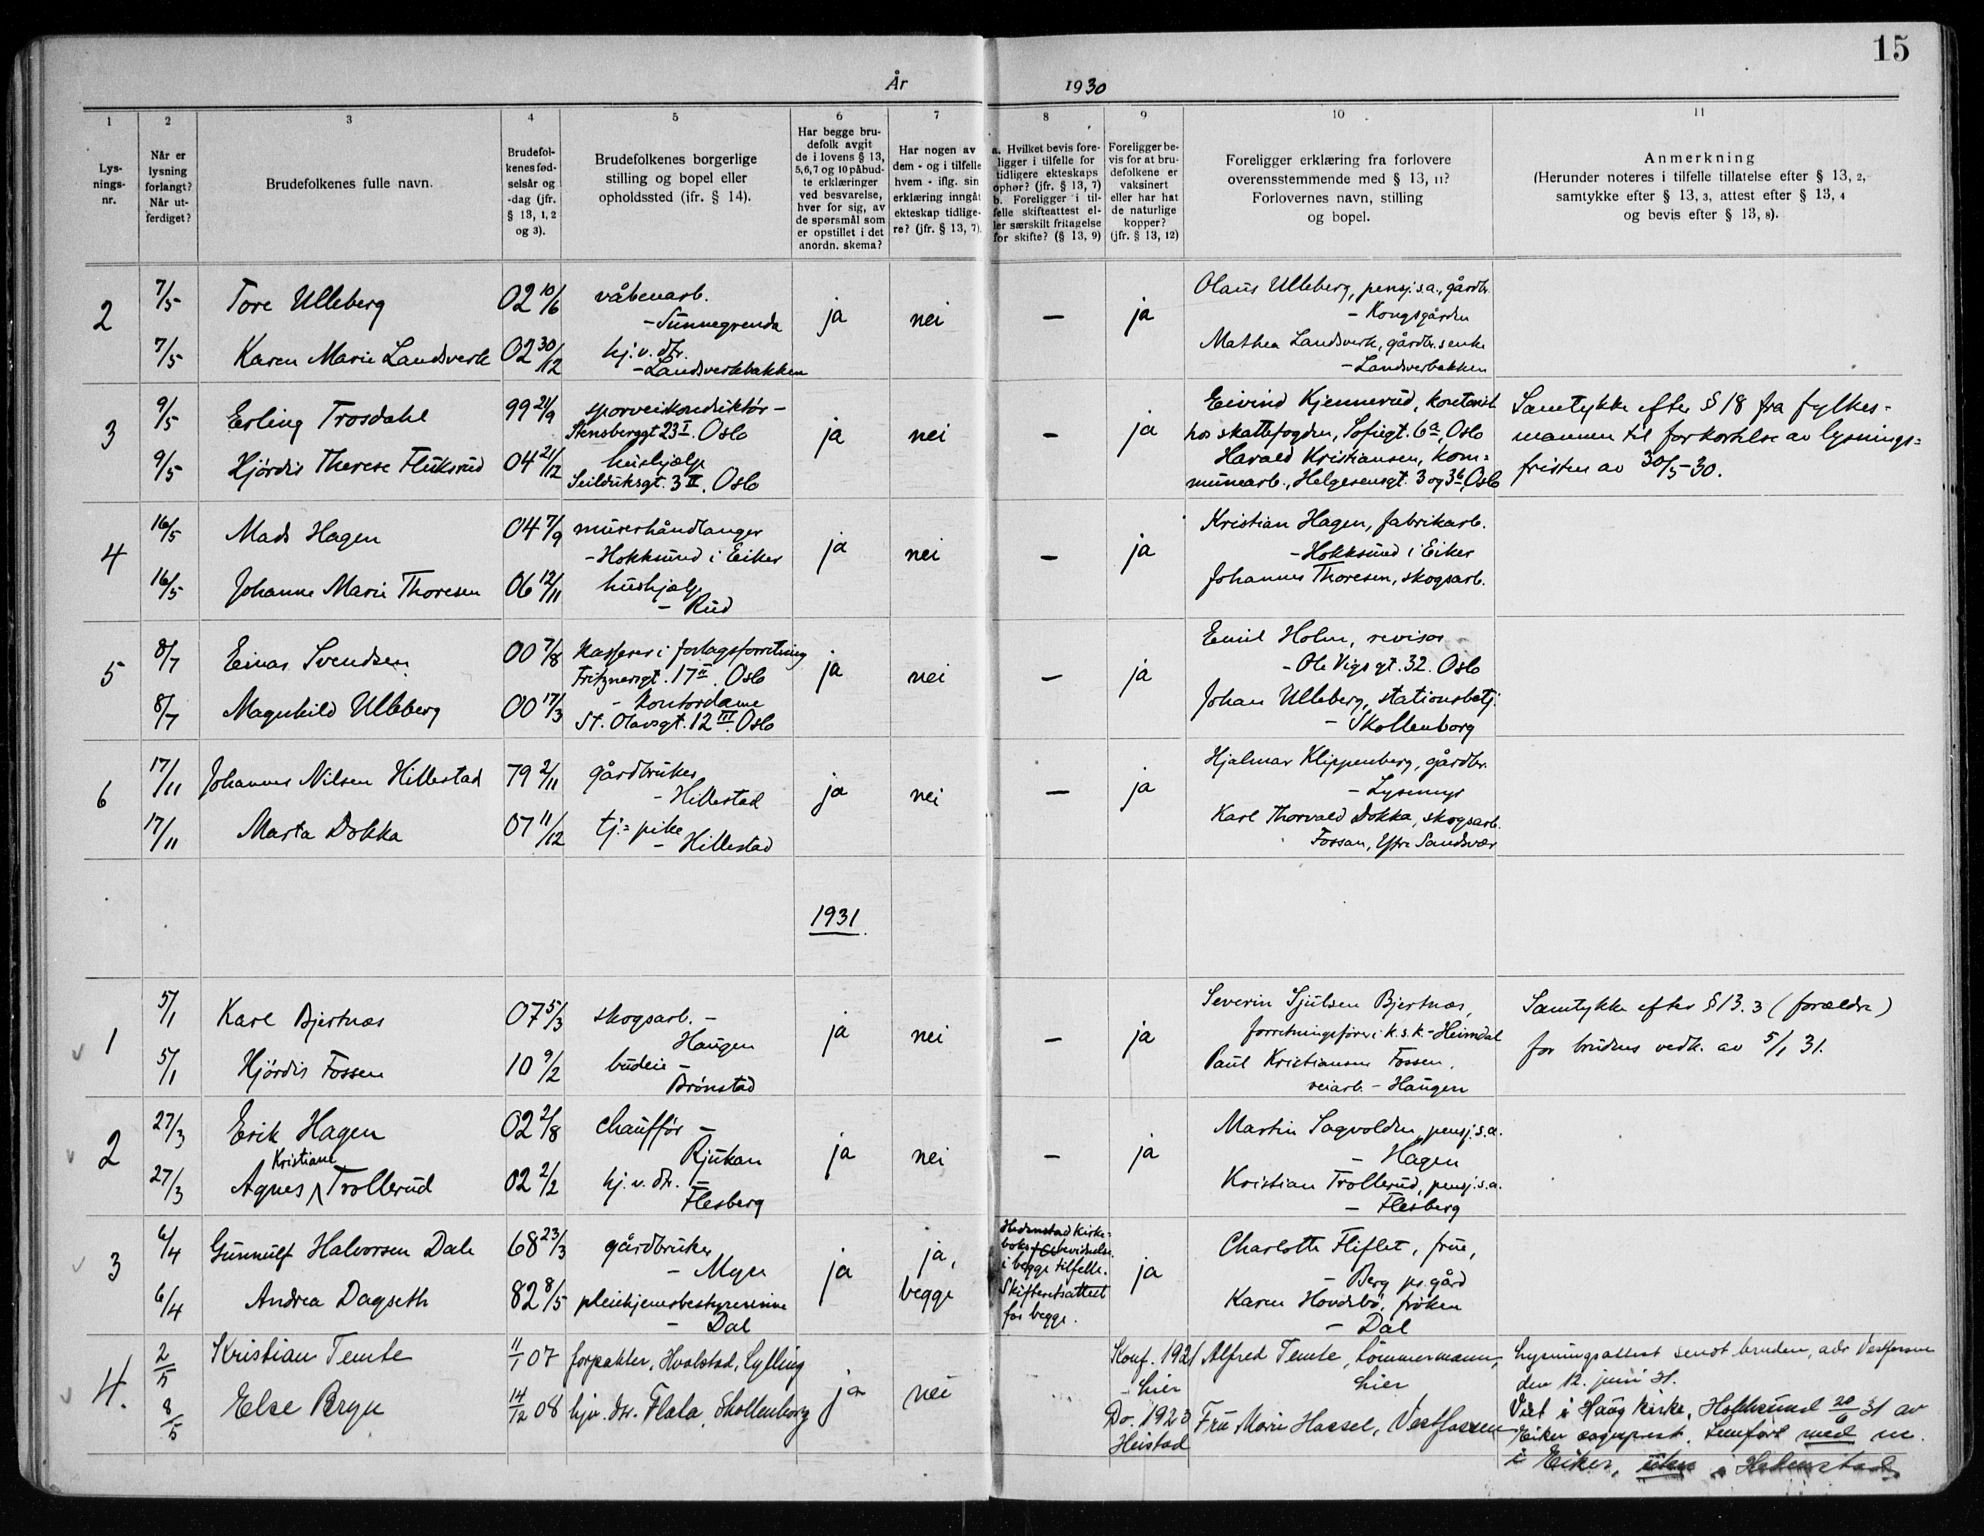 15
År 1930
1 2 3 4 5 6 7 8 9 10 11
Lys-
nings-
nr.
Når er
lysning
forlangt?
Når ut-
ferdiget?
Brudefolkenes fulle navn.
Brudefol-
kenes fød-
selsår og
-dag (jfr.
§ 13, 1, 2
og 3).
Brudefolkenes borgerlige
stilling og bopel eller
opholdssted (jfr. § 14).
Har begge bru-
defolk avgit
de i lovens § 13,
5,6,7 og 10 påbud-
te erklæringer
ved besvarelse,
hver for sig, av
de spørsmål som
er opstillet i det
anordn. skema?
Har nogen av
dem - og i tilfelle
hvem - iflg. sin
erklæring inngåt
ekteskap tidlige-
re? (jfr. § 13, 7).
a. Hvilket bevis fore-
ligger i tilfelle for
tidligere ekteskaps
ophør? (jfr. § 13, 7)
b. Foreligger i til-
felle skifteattest el-
ler særskilt fritagelse
for skifte? (§ 13, 9)
Foreligger be-
vis for at bru-
defolkene er
vaksinert
eller har hat
de naturlige
kopper?
(jfr. § 13, 12)
Foreligger erklæring fra forlovere
overensstemmende med § 13, 11?
Forlovernes navn, stilling
og bopel.
Anmerkning
(Herunder noteres i tilfelle tillatelse efter § 13, 2,
samtykke efter § 13, 3, attest efter § 13, 4
og bevis efter § 13, 8).
2 7/5 Tore Ulleberg 02 10/6 våbenarb.
- Sunnegrenda ja nei — ja
Olaus Ulleberg, pensj.s.a., gårdbr.
- Kongsgården
7/5 Karen Marie Landsverk 02 30/12 hj.v. dtr.
- Landsverkbakken
Mathea Landsverk, gårdbr.senke
- Landsverbakken
3 9/5 Erling Trosdahl 99 21/9 sporveiskonduktør -
Stensberggt 23 I. Oslo ja nei — ja
Eivind Kjennerud, kontorist
hos skattefogden, Sofiegt. 6a, Oslo
Samtykke efter § 18 fra fylkes-
mannen til forkortelse av lysnings-
fristen av 30/5-30.
9/5 Hjördis Therese Fluksrud 04 21/12 hushjælp
Seilduksgt. 3 II. Oslo
Harald Kristiansen, kom-
munearb., Helgesensgt. 3 og 3b, Oslo
4 16/5 Mads Hagen 04 7/9 murerhåndlanger
- Hokksund i Eiker ja nei — ja
Kristian Hagen, fabrikarb.
- Hokksund i Eiker
16/5 Johanne Marie Thoresen 06 12/11 hushjælp
- Rud
Johannes Thoresen, skogsarb.
5 8/7 Einar Svendsen 00 7/8 Kasserer i forlagsforretning
Fritznersgt. 17 II. Oslo ja nei — ja
Emil Holm, revisor
- Ole Vigs gt. 32. Oslo
8/7 Magnhild Ulleberg 00 17/3 - Kontordame
St. Olavsgt. 12 III. Oslo
Johan Ulleberg, stationsbetj.
- Skollenborg
6 17/11 Johannes Nilsen Hillestad 79 2/11 gårdbruker
- Hillestad ja nei — ja
Hjalmar Klippenberg, gårdbr.
- Lysemyr
17/11 Marta Dokka 07 11/12 tj.-pike
- Hillestad
Karl Thorvald Dokka, skogsarb.
Fossan, Ytre Sandsvær
1931
1 5/1 Karl Bjertnæs 07 5/3 skogsarb. -
Haugen ja nei — ja
Severin Sjulsen Bjertnæs,
forretningsfører i k.s.k. - Heimdal
Samtykke efter § 13.3 (forældre)
for brudens vedk. av 5/1 31.
5/1 Hjördis Fossen 10 9/2 budeie -
Brønstad
Paul Kristiansen Fossen,
veiarb. - Haugen
2 27/3 Erik Hagen 02 2/8 chauffør -
Rjukan ja nei — ja
Martin Sagvolden, pensj.s.a.
- Hagen
27/3 Agnes Kristiane Trollerud 02 2/2 hj.v. dtr. -
Flesberg
Kristian Trollerud, pensj.s.a.
- Flesberg
3 6/4 Gunnulf Halvorsen Dale 68 23/3 gårdbruker
- Myre ja ja,
begge
Hedenstad kirke-
boks
i begge tilfelle.
Skifteretsattest
for begge.
ja
Charlotte Fliflet, frue,
- Berg pr. gård
6/4 Andrea Dagseth 82 8/5 pleiehjemsbestyrerinne
- Dal
Karen Hovdebø, frøken
- Dal
4. 2/5 Kristian Temte 11/1 07 forpakter, Hvalstad, Sylling
ja nei Konf. 1921
- Lier
Alfred Temte, tömmermann,
Lier
8/5 Else Brye 14/12 08 hjv. dtr. Flata, Skollenborg
Do. 1923
Heistad
Fru Marie Hassel, Vestfossen
Lysningsattest sendt bruden, adr Vestfossen
den 12. juni 31.
Viet i Haug kirke, Hokksund 20/6 31 av
Eiker sogneprest. Innført med nr.
i Eiker, uten i Hedenstad.